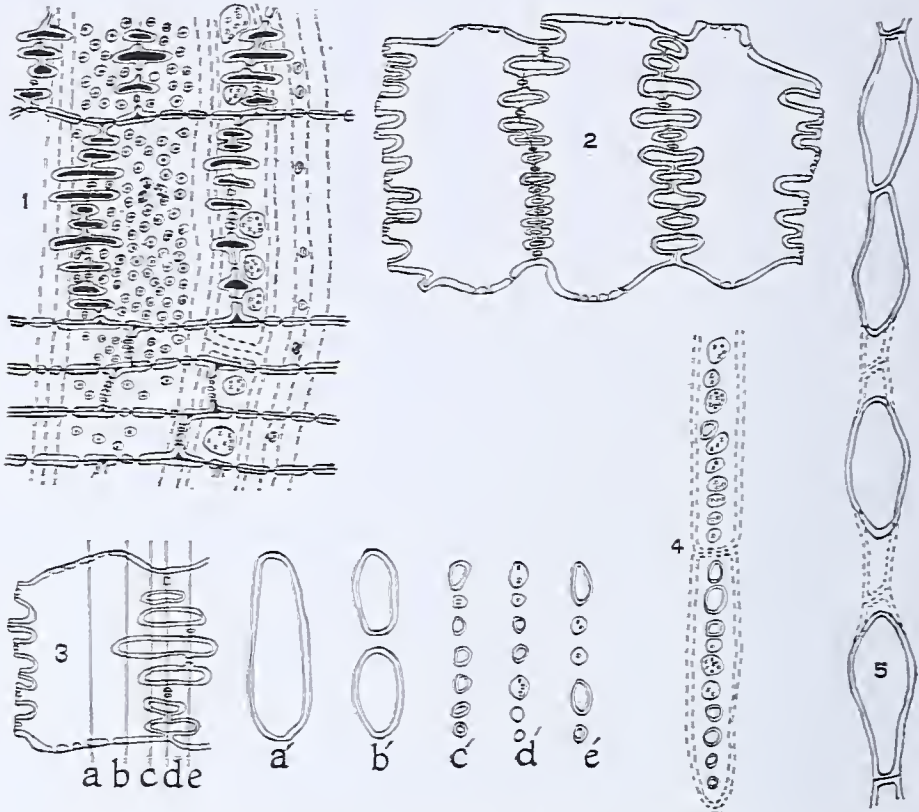 1
2
3
4
5
a b c d e
a′ b′ c′ d′ e′